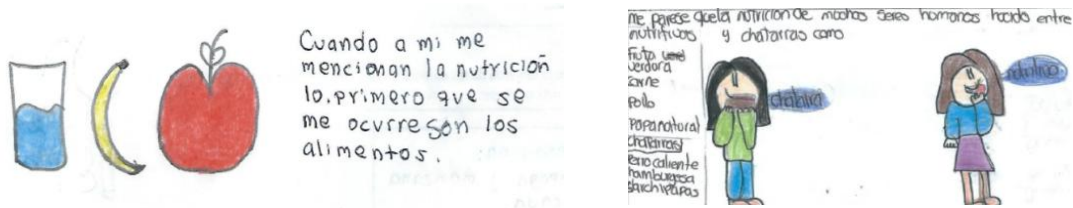 Cuando a mi me
mencionan la nutrición
lo primero que se
me ocurre son los
alimentos.
me parese que la nutricion de muchos seres homanos ha cido entre
nutritivos y chatarras como
fruta
verdora
carne
pollo
papa natural
chatarras
perro caliente
hamburgesa
salchipapas
chatarra
nutritivo